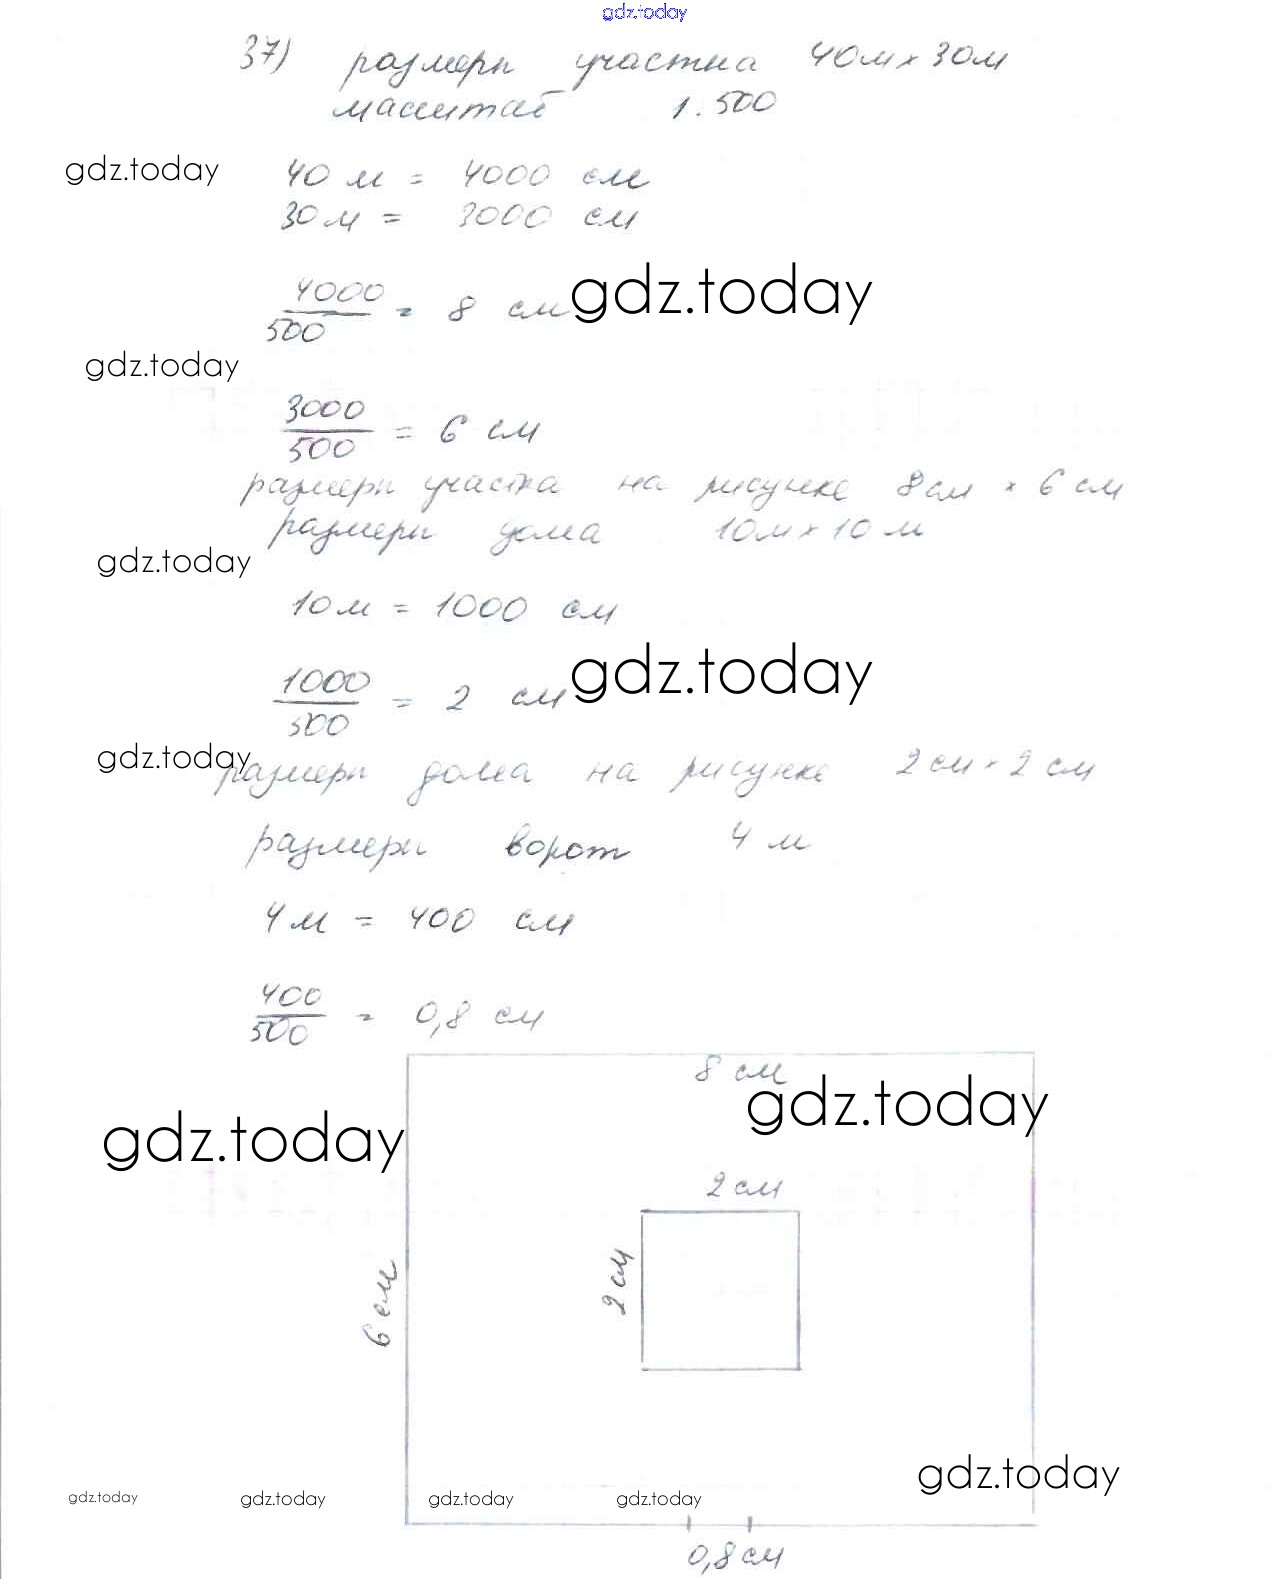 gdz.today
37) размеры участка 40м × 30м
масштаб 1:500
gdz.today
40 м = 4000 см
30 м = 3000 см
4000/500 = 8 см
gdz.today
gdz.today
3000/500 = 6 см
размеры участка на рисунке 8 см × 6 см
размеры дома 10м × 10 м
gdz.today
10 м = 1000 см
1000/500 = 2 см
gdz.today
gdz.today
размеры дома на рисунке 2 см × 2 см
размеры ворот 4 м
4 м = 400 см
400/500 = 0,8 см
8 см
gdz.today
gdz.today
2 см
2 см
6 см
gdz.today
gdz.today
gdz.today
gdz.today
gdz.today
0,8 см